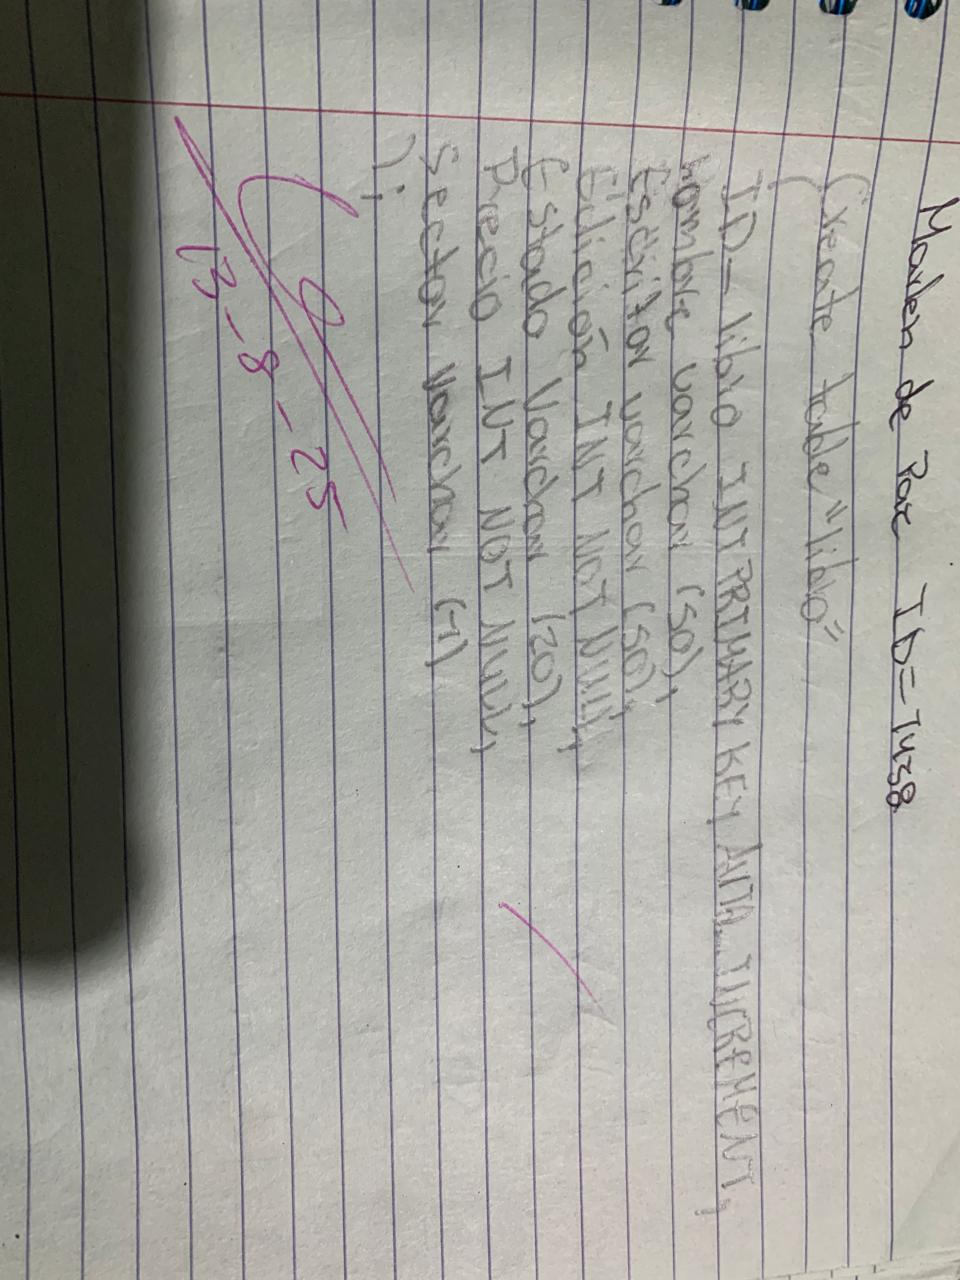 Marlen de Paz ID=7438
Create table "libro"
(
ID_libro INT PRIMARY KEY AUTO_INCREMENT,
nombre varchar (50),
Escritor varchar (50),
Edición INT NOT NULL,
Estado Varchar (20),
Precio INT NOT NULL,
Sector Varchar (1)
);
13-8-25